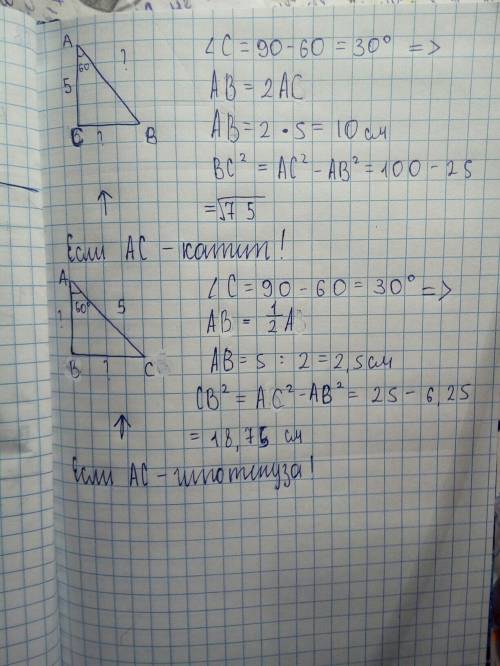 A
60
?
5
C
?
B
∠C = 90 - 60 = 30° =>
AB = 2AC
AB = 2 • 5 = 10 см
BC² = AC² - AB² = 100 - 25
= √75
↑
Если AC - катит!
A
60°
?
5
B
?
C
∠C = 90 - 60 = 30° =>
AB = 1/2 A
AB = 5 : 2 = 2,5 см
CB² = AC² - AB² = 25 - 6,25
= 18,75 см
↑
Если AC - гипотинуза!